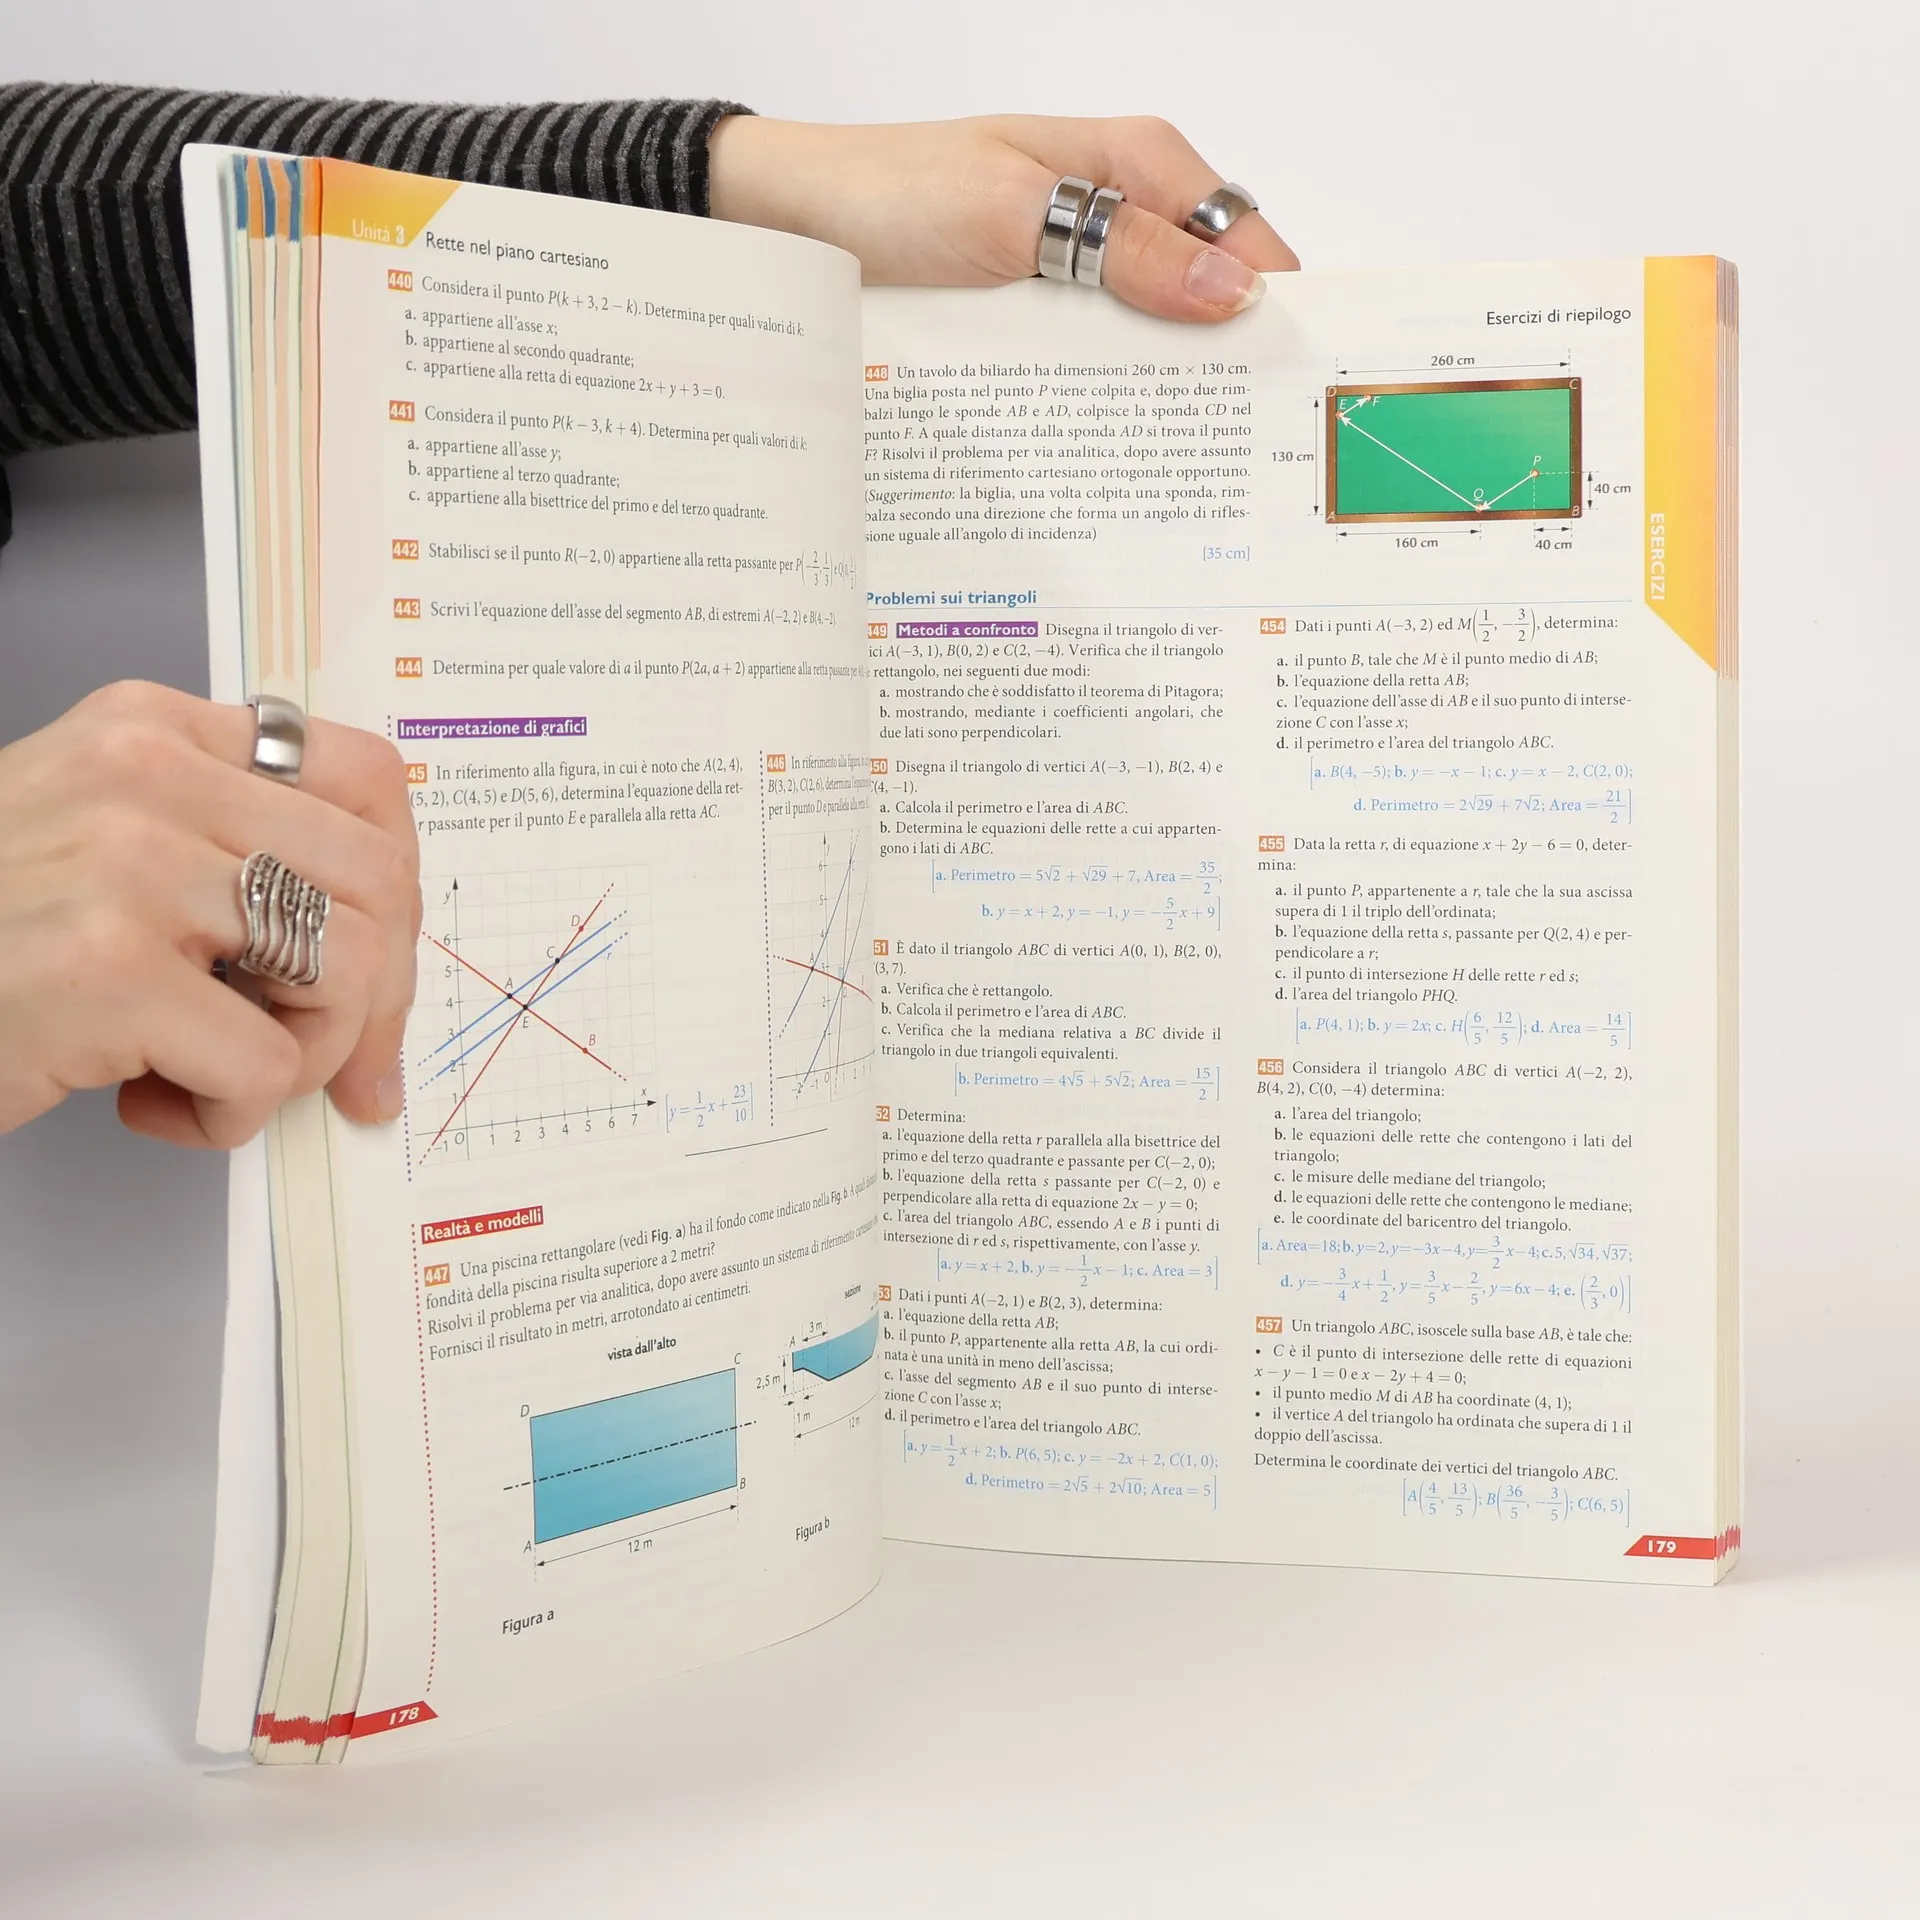 Unità 3 Rette nel piano cartesiano
440 Considera il punto P(k + 3, 2 − k). Determina per quali valori di k:
a. appartiene all'asse x;
b. appartiene al secondo quadrante;
c. appartiene alla retta di equazione 2x + y + 3 = 0.
441 Considera il punto P(k − 3, k + 4). Determina per quali valori di k:
a. appartiene all'asse y;
b. appartiene al terzo quadrante;
c. appartiene alla bisettrice del primo e del terzo quadrante.
442 Stabilisci se il punto R(−2, 0) appartiene alla retta passante per P(−2/3, 1/3) e
443 Scrivi l'equazione dell'asse del segmento AB, di estremi A(−2, 2) e B(4, −2)
444 Determina per quale valore di a il punto P(2a, a + 2) appartiene alla retta passante per
Interpretazione di grafici
45 In riferimento alla figura, in cui è noto che A(2, 4),
(5, 2), C(4, 5) e D(5, 6), determina l'equazione della ret-
r passante per il punto E e parallela alla retta AC.
y
6
5
4
3
2
1
−1 O 1 2 3 4 5 6 7 x
A
B
C
D
E
r
[y = 1/2 x + 23/10]
446 In riferimento alla figura,
B(3, 2), C(2, 6), determina
per il punto D e parallela alla
Realtà e modelli
447 Una piscina rettangolare (vedi Fig. a) ha il fondo come indicato nella Fig. b. A
fondità della piscina risulta superiore a 2 metri?
Risolvi il problema per via analitica, dopo avere assunto un sistema di riferimento cartesiano
Fornisci il risultato in metri, arrotondato ai centimetri.
vista dall'alto
D
C
A
B
12 m
Figura a
sezione
A
3 m
2,5 m
1 m
12 m
Figura b
178
Esercizi di riepilogo
448 Un tavolo da biliardo ha dimensioni 260 cm × 130 cm.
Una biglia posta nel punto P viene colpita e, dopo due rim-
balzi lungo le sponde AB e AD, colpisce la sponda CD nel
punto F. A quale distanza dalla sponda AD si trova il punto
F? Risolvi il problema per via analitica, dopo avere assunto
un sistema di riferimento cartesiano ortogonale opportuno.
(Suggerimento: la biglia, una volta colpita una sponda, rim-
balza secondo una direzione che forma un angolo di rifles-
sione uguale all'angolo di incidenza)
[35 cm]
260 cm
D
C
E
F
130 cm
P
Q
40 cm
A
B
160 cm
40 cm
ESERCIZI
Problemi sui triangoli
449 Metodi a confronto Disegna il triangolo di ver-
ici A(−3, 1), B(0, 2) e C(2, −4). Verifica che il triangolo
è rettangolo, nei seguenti due modi:
a. mostrando che è soddisfatto il teorema di Pitagora;
b. mostrando, mediante i coefficienti angolari, che
due lati sono perpendicolari.
50 Disegna il triangolo di vertici A(−3, −1), B(2, 4) e
(4, −1).
a. Calcola il perimetro e l'area di ABC.
b. Determina le equazioni delle rette a cui apparten-
gono i lati di ABC.
[a. Perimetro = 5√2 + √29 + 7, Area = 35/2;
b. y = x + 2, y = −1, y = −5/2 x + 9]
51 È dato il triangolo ABC di vertici A(0, 1), B(2, 0),
(3, 7).
a. Verifica che è rettangolo.
b. Calcola il perimetro e l'area di ABC.
c. Verifica che la mediana relativa a BC divide il
triangolo in due triangoli equivalenti.
[b. Perimetro = 4√5 + 5√2; Area = 15/2]
52 Determina:
a. l'equazione della retta r parallela alla bisettrice del
primo e del terzo quadrante e passante per C(−2, 0);
b. l'equazione della retta s passante per C(−2, 0) e
perpendicolare alla retta di equazione 2x − y = 0;
c. l'area del triangolo ABC, essendo A e B i punti di
intersezione di r ed s, rispettivamente, con l'asse y.
[a. y = x + 2, b. y = −1/2 x − 1; c. Area = 3]
53 Dati i punti A(−2, 1) e B(2, 3), determina:
a. l'equazione della retta AB;
b. il punto P, appartenente alla retta AB, la cui ordi-
nata è una unità in meno dell'ascissa;
c. l'asse del segmento AB e il suo punto di interse-
zione C con l'asse x;
d. il perimetro e l'area del triangolo ABC.
[a. y = 1/2 x + 2; b. P(6, 5); c. y = −2x + 2, C(1, 0);
d. Perimetro = 2√5 + 2√10; Area = 5]
454 Dati i punti A(−3, 2) ed M(1/2, −3/2), determina:
a. il punto B, tale che M è il punto medio di AB;
b. l'equazione della retta AB;
c. l'equazione dell'asse di AB e il suo punto di interse-
zione C con l'asse x;
d. il perimetro e l'area del triangolo ABC.
[a. B(4, −5); b. y = −x − 1; c. y = x − 2, C(2, 0);
d. Perimetro = 2√29 + 7√2; Area = 21/2]
455 Data la retta r, di equazione x + 2y − 6 = 0, deter-
mina:
a. il punto P, appartenente a r, tale che la sua ascissa
supera di 1 il triplo dell'ordinata;
b. l'equazione della retta s, passante per Q(2, 4) e per-
pendicolare a r;
c. il punto di intersezione H delle rette r ed s;
d. l'area del triangolo PHQ.
[a. P(4, 1); b. y = 2x; c. H(6/5, 12/5); d. Area = 14/5]
456 Considera il triangolo ABC di vertici A(−2, 2),
B(4, 2), C(0, −4) determina:
a. l'area del triangolo;
b. le equazioni delle rette che contengono i lati del
triangolo;
c. le misure delle mediane del triangolo;
d. le equazioni delle rette che contengono le mediane;
e. le coordinate del baricentro del triangolo.
[a. Area=18; b. y=2, y=−3x−4, y=3/2 x−4; c. 5, √34, √37;
d. y=−3/4 x+1/2, y=3/5 x−2/5, y=6x−4; e. (2/3, 0)]
457 Un triangolo ABC, isoscele sulla base AB, è tale che:
• C è il punto di intersezione delle rette di equazioni
x − y − 1 = 0 e x − 2y + 4 = 0;
• il punto medio M di AB ha coordinate (4, 1);
• il vertice A del triangolo ha ordinata che supera di 1 il
doppio dell'ascissa.
Determina le coordinate dei vertici del triangolo ABC.
[A(4/5, 13/5); B(36/5, −3/5); C(6, 5)]
179